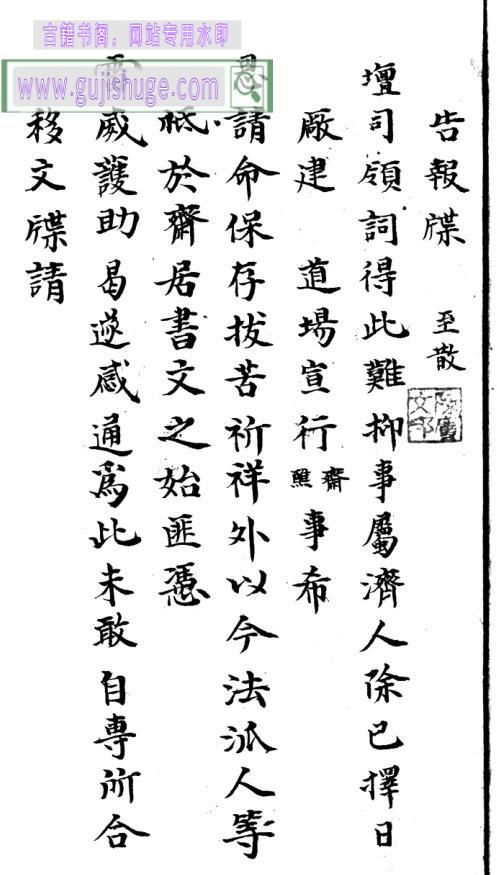 古籍书阁，网站专用水印
www.gujishuge.com
告報牒 至散
壇司領詞得此難抑事屬濟人除已擇日
厰建 道場宣行齋醮事希
恩請命保存拔苦祈祥外以今法派人等
祗於齋居書文之始匪憑
靈威護助曷遂感通為此未敢自專所合
移文牒請